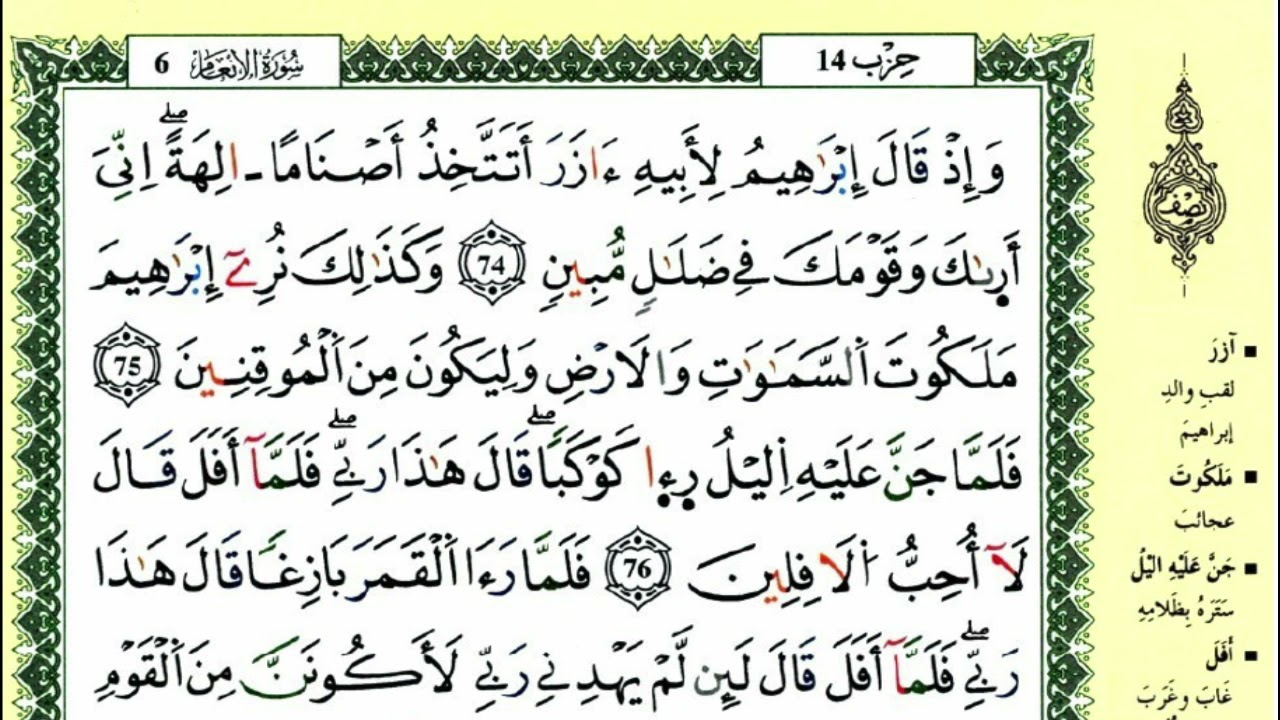 سُورَةُ الأَنْعَامِ 6
حِزْب 14
وَإِذْ قَالَ إِبْرَٰهِيمُ لِأَبِيهِ ءَازَرَ أَتَتَّخِذُ أَصْنَامًا ـ الِهَةً صلے اِنِّىَ
أَر۪ىٰكَ وَقَوْمَكَ فِے ضَلَٰلٍ مُّبِينٍ 74 وَكَذَٰلِكَ نُرِےٓ إِبْرَٰهِيمَ
مَلَكُوتَ اَ۬لسَّمَٰوَٰتِ وَالَارْضِ وَلِيَكُونَ مِنَ اَ۬لْمُوقِنِينَ 75
فَلَمَّا جَنَّ عَلَيْهِ اِ۬ليْلُ ر۪ء۪ا كَوْكَباً صلے قَالَ هَٰذَا رَبِّے صلے فَلَمَّآ أَفَلَ قَالَ
لَآ أُحِبُّ اُ۬لَافِلِينَ 76 فَلَمَّا رَءَا اَ۬لْقَمَرَ بَازِغاً قَالَ هَٰذَا
رَبِّے صلے فَلَمَّآ أَفَلَ قَالَ لَئِن لَّمْ يَهْدِنِے رَبِّے لَأَكُونَنَّ مِنَ اَ۬لْقَوْمِ
نِصْف
آزَرَ
لقبِ والدِ
إبراهيمَ
مَلَكُوتَ
عجائبَ
جَنَّ عَلَيْهِ اليْلُ
سَتَرَهُ بِظَلامِهِ
أَفَلَ
غَابَ وغَرَبَ